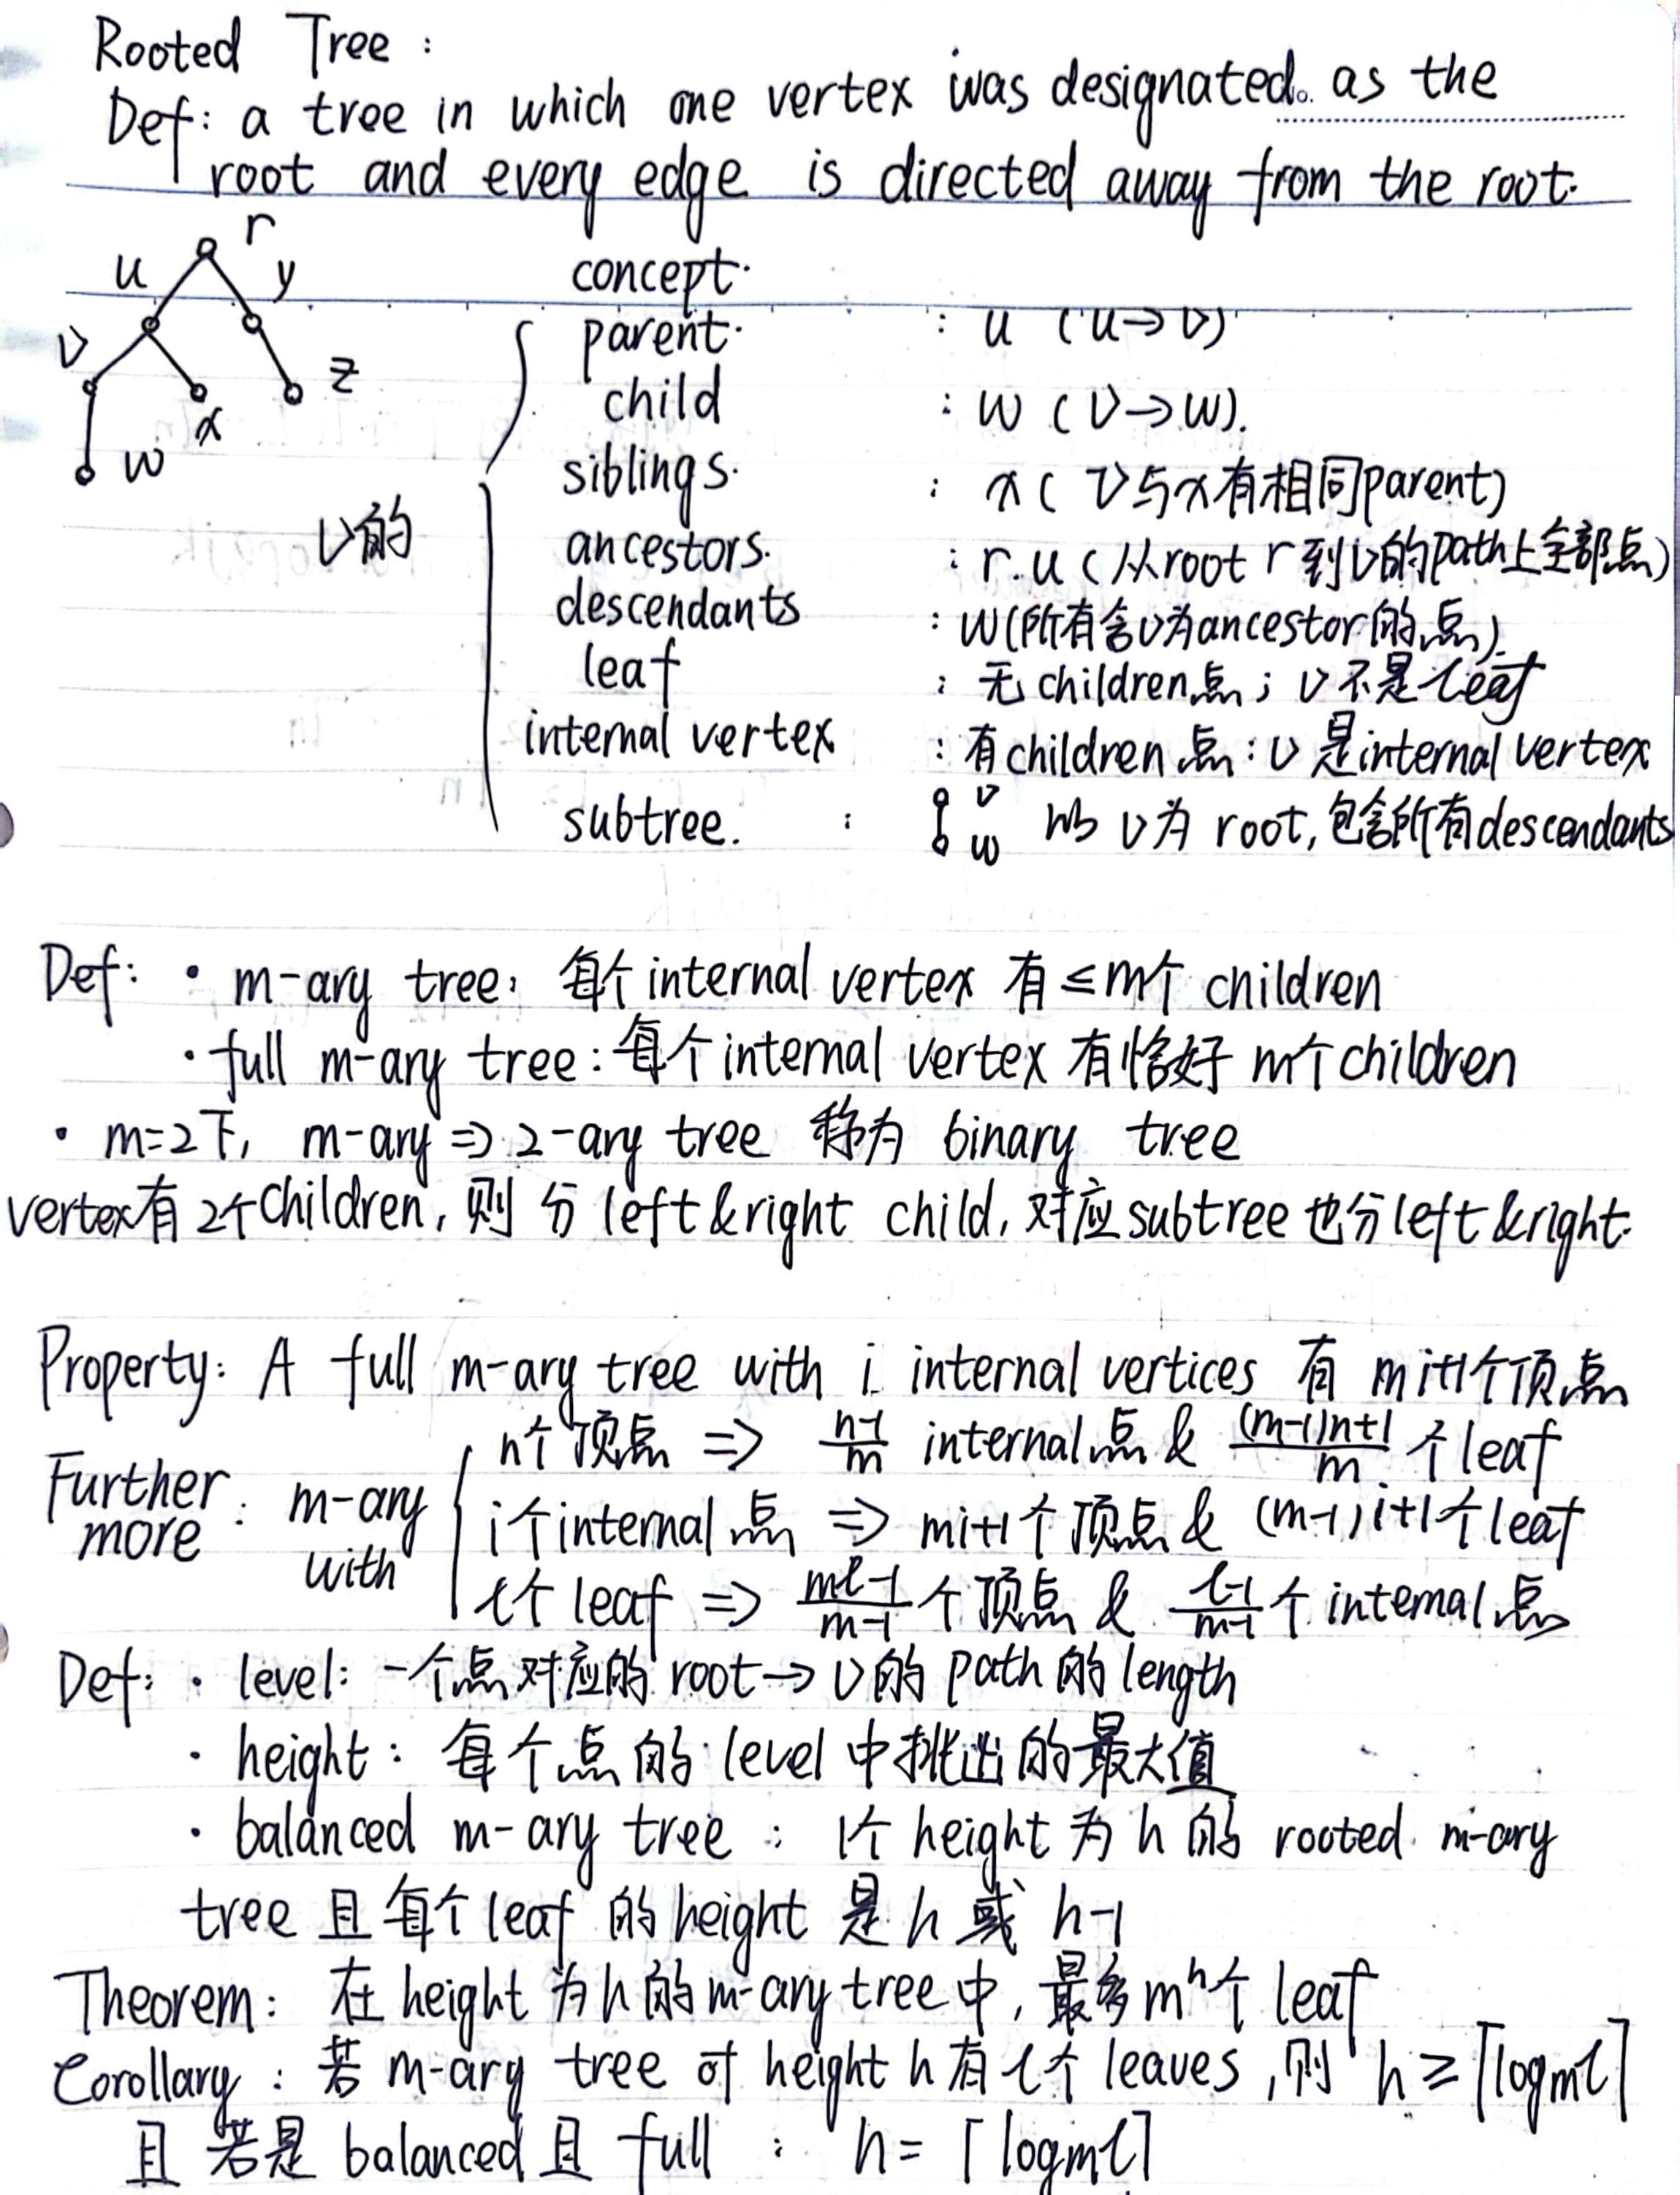 Rooted Tree :
Def: a tree in which one vertex was designated. as the
root and every edge is directed away from the root.
r
u y
concept.
v
parent. : u (u→v)
z
child : w (v→w).
x
w
siblings. : x ( v与x有相同parent)
v的
ancestors. : r.u (从root r到v的path上全部点)
descendants : w(所有含v为ancestor的点)
leaf : 无children点; v不是leaf
internal vertex : 有children点: v是internal vertex
subtree. : v w 以v为root,包含所有descendants
Def: · m-ary tree: 每个internal vertex 有≤m个 children
· full m-ary tree: 每个internal vertex 有恰好 m个children
· m=2下, m-ary ⇒ 2-ary tree 称为 binary tree
vertex有2个children, 则分 left & right child, 对应subtree也分left & right.
Property: A full m-ary tree with i internal vertices 有 mi+1个顶点
Further more : m-ary with
n个顶点 ⇒ (n-1)/m internal点 & ((m-1)n+1)/m 个leaf
i个internal点 ⇒ mi+1个顶点 & (m-1)i+1个leaf
ℓ个 leaf ⇒ (mℓ-1)/(m-1) 个顶点 & (ℓ-1)/(m-1) 个 internal点
Def: · level: 一个点对应的 root→v的 path 的 length
· height: 每个点的 level 中挑出的最大值
· balanced m-ary tree : 1个 height 为 h 的 rooted m-ary
tree 且每个leaf 的height 是 h 或 h-1
Theorem: 在 height 为h的m-ary tree中, 最多mʰ个 leaf
Corollary : 若 m-ary tree of height h有ℓ个 leaves, 则 h ≥ ⌈logmℓ⌉
且 若是 balanced 且 full : h = ⌈logmℓ⌉